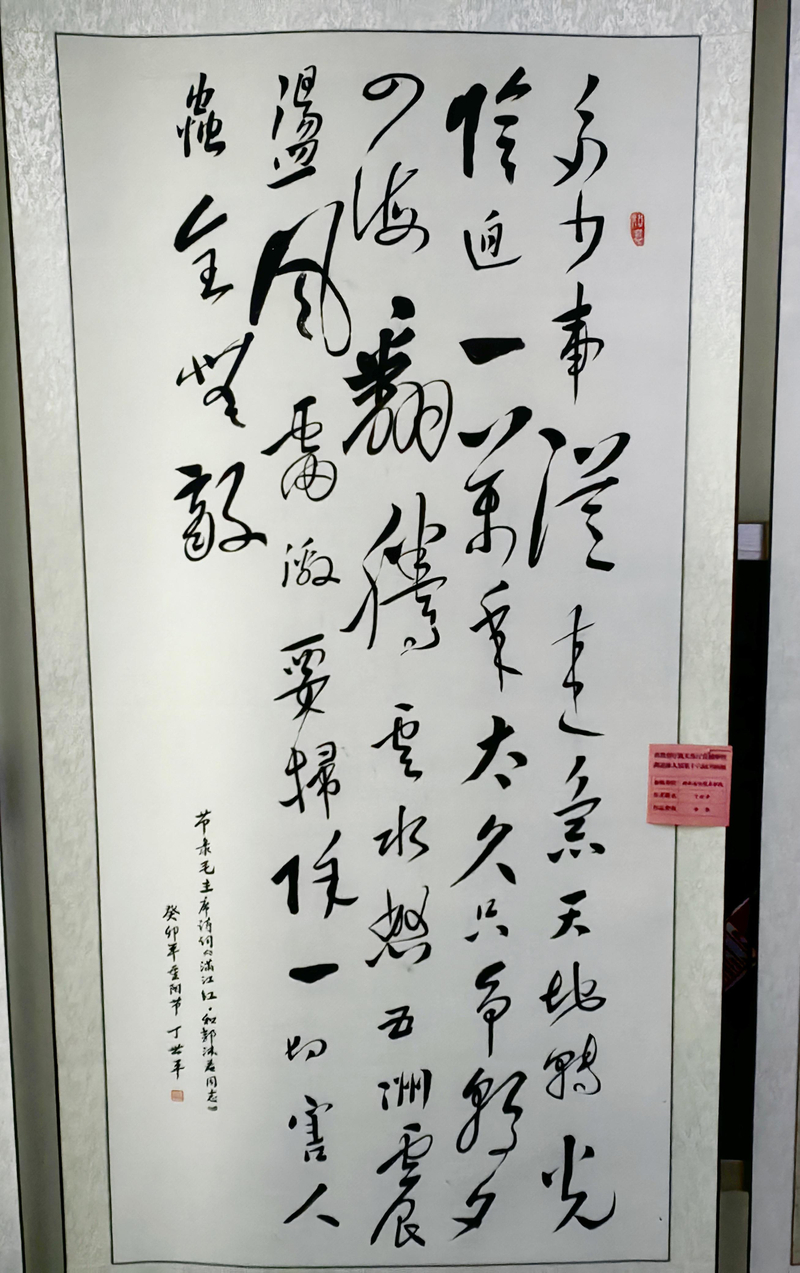 多少事從來急天地轉光
陰迫一萬年太久只争朝夕
四海翻騰雲水怒五洲震
盪風雷激要掃除一切害人
蟲全無敵
节录毛主席诗词《满江红·和郭沫若同志》
癸卯年重阳节 丁世平